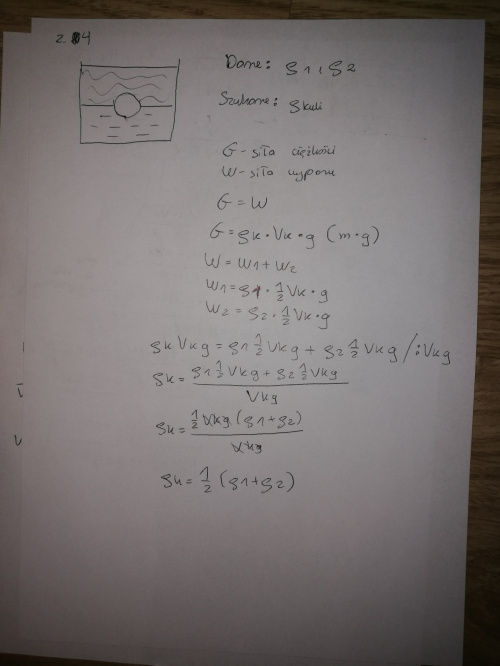 2.4
Dane: ρ1, ρ2
Szukane: ρkuli
G-siła ciężkości
W-siła wyporu
G=W
G=ρk·Vk·g (m·g)
W=W1+W2
W1=ρ1·1/2Vk·g
W2=ρ2·1/2Vk·g
ρkVkg=ρ1 1/2Vkg+ρ2 1/2Vkg /:Vkg
ρk=(ρ1 1/2Vkg+ρ2 1/2Vkg)/Vkg
ρk=1/2Vkg(ρ1+ρ2)/Vkg
ρk=1/2(ρ1+ρ2)